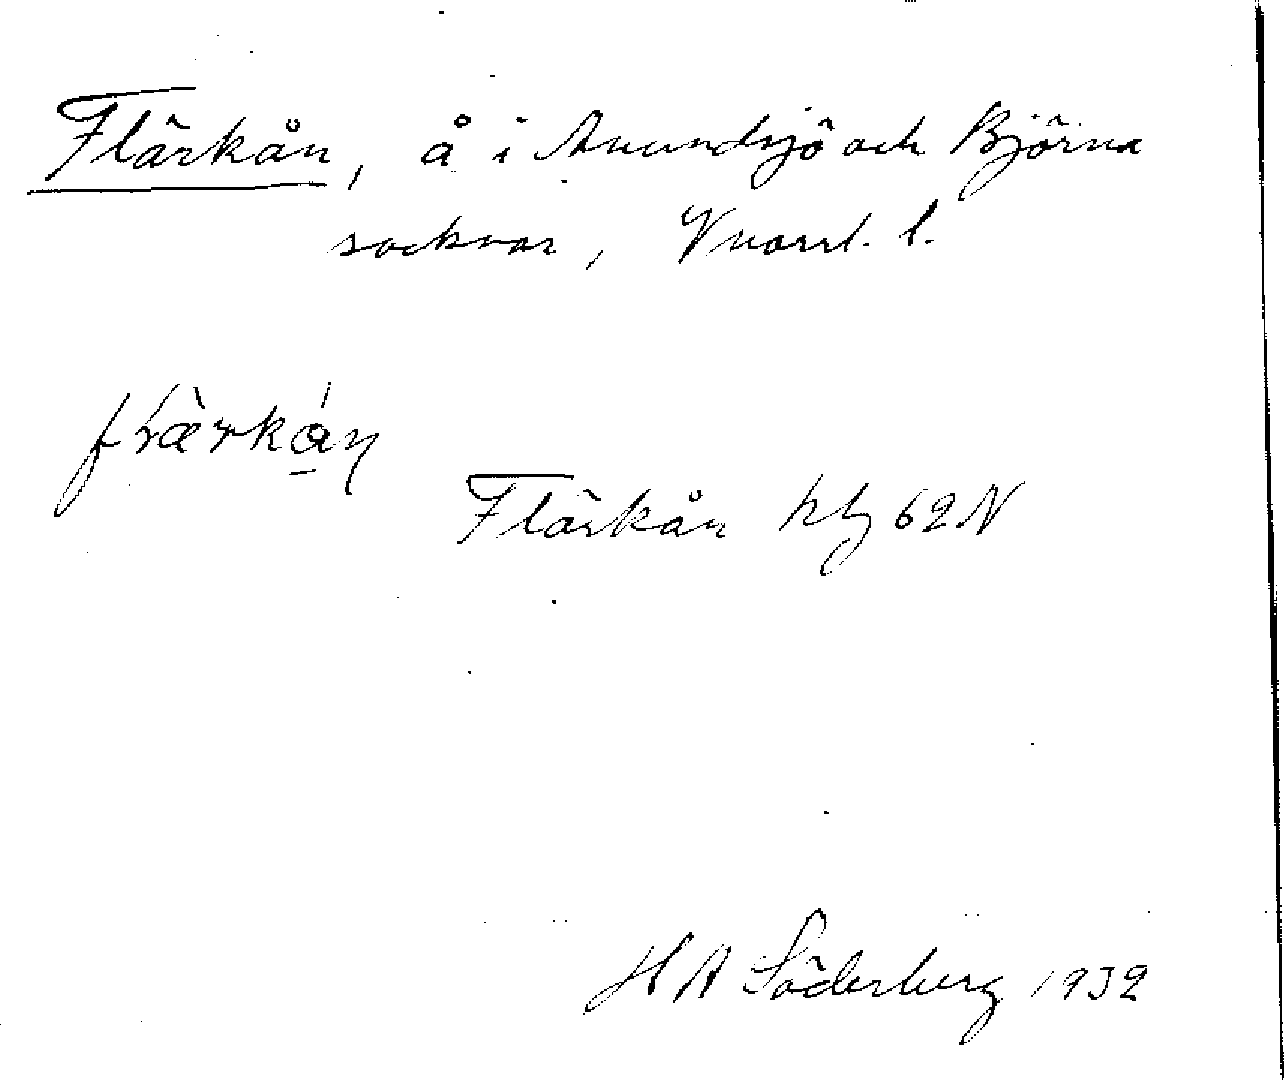 Flärkån, å i Anundsjö och Björna
socknar, Vnorrl. l.
Flärkån kbl 62 N
H A Söderberg 1932